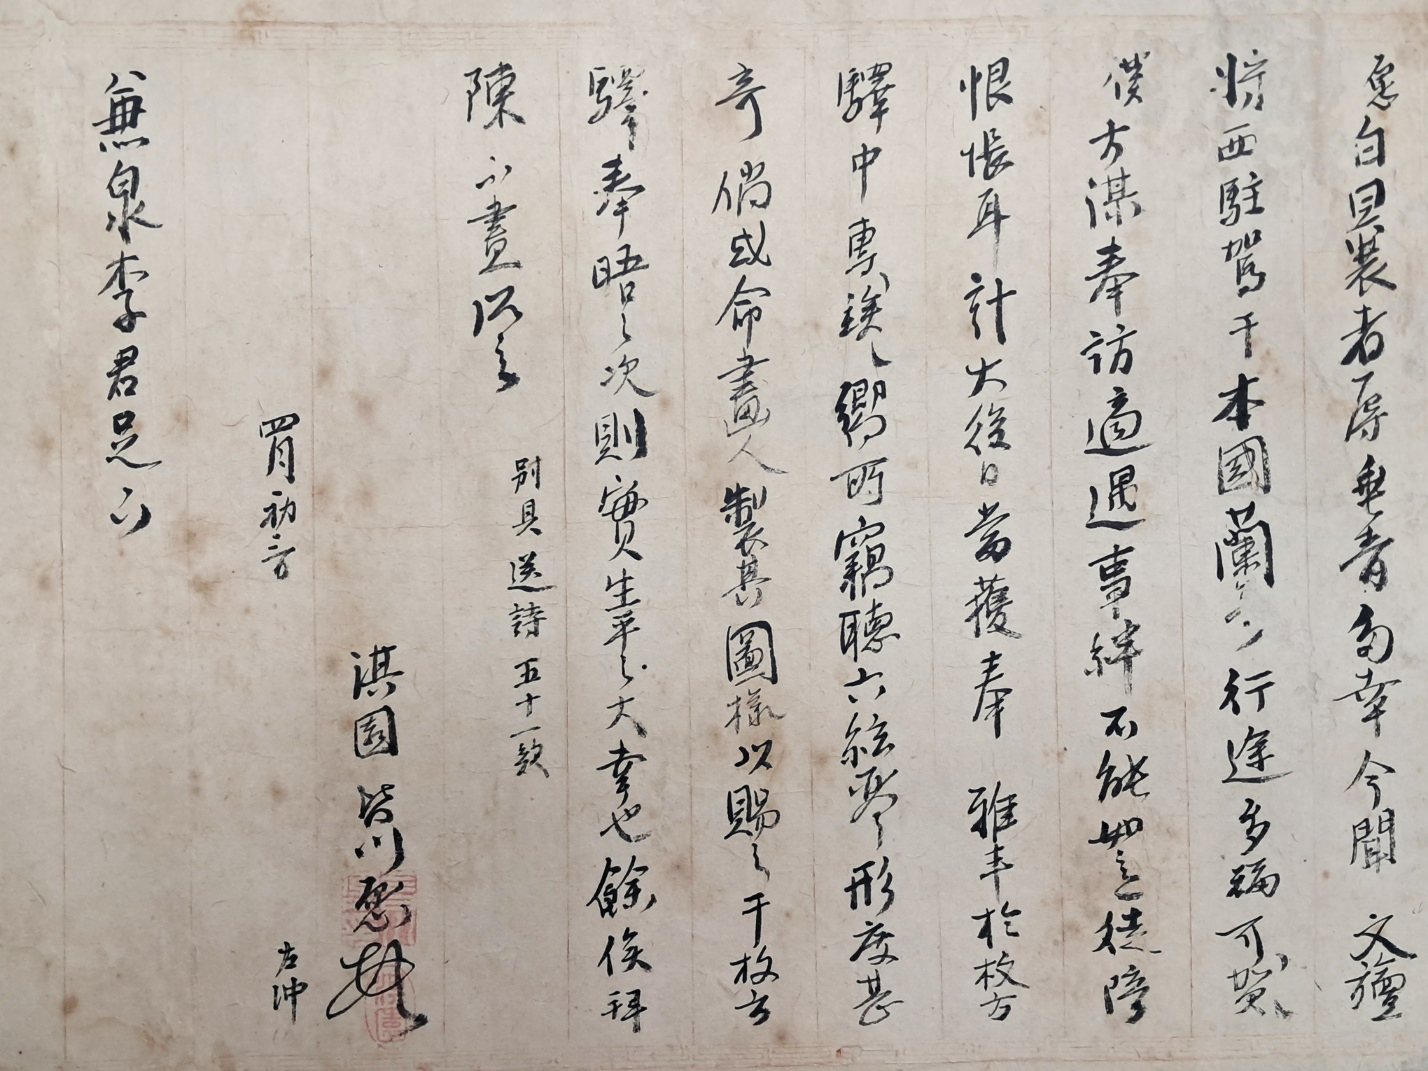 愿白具裝者辱垂青多幸今聞 文壇
將西駐駕于本國蘭 行途多福可賀
僕方謀奉訪適遇事絆不能如意徒障
恨悵耳計大後日當獲奉 雅丰於枚方
驛中專竢〻嚮所竊聽六絃琴形度甚
奇倘或命畫人製其圖樣以賜之于枚方
驛奉晤之次則實生平之大幸也餘俟拜
陳不盡以
別具送詩五十一款
淇園皆川愿拜
左冲
四月初方
兼泉李君足下